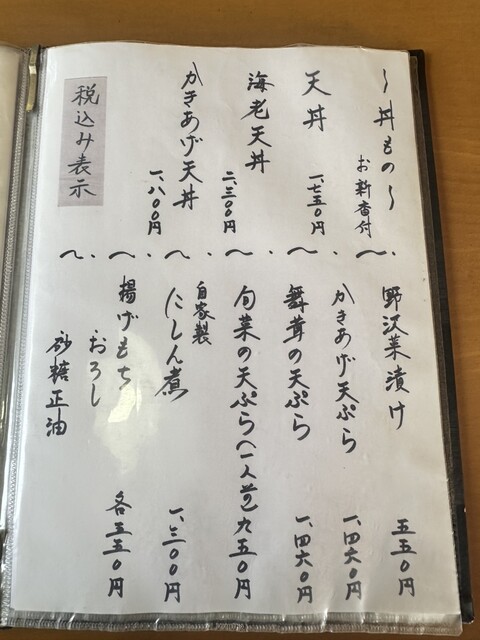 〜丼もの〜
お新香付
天丼
一、七五〇円
海老天丼
二、三〇〇円
かきあげ天丼
一、八〇〇円
税込み表示
野沢菜漬け
五五〇円
かきあげ天ぷら
一、四六〇円
舞茸の天ぷら
一、四六〇円
旬菜の天ぷら(一人前)九五〇円
自家製
にしん煮
一、三〇〇円
揚げもち
おろし
砂糖正油
各五五〇円